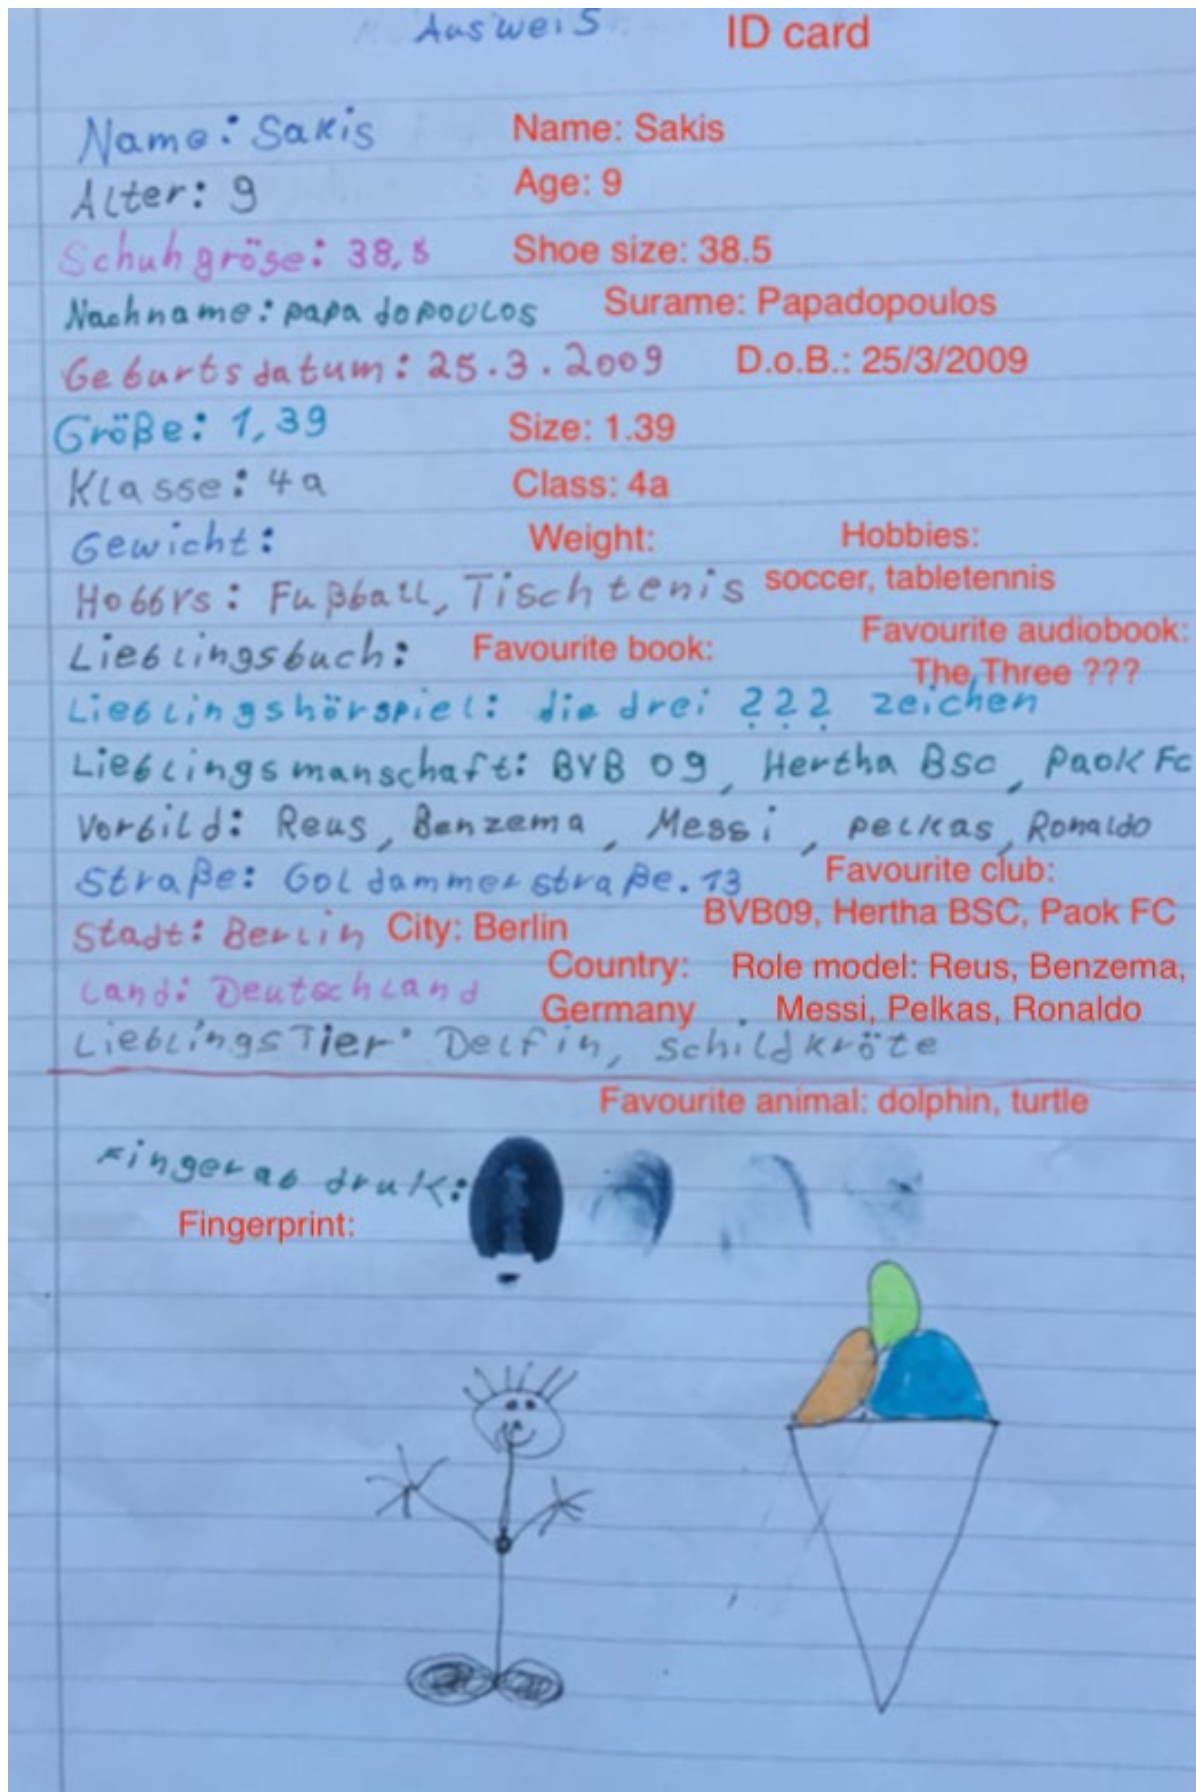 Ausweis ID card
Name: Sakis Name: Sakis
Alter: 9 Age: 9
Schuhgröse: 38,5 Shoe size: 38.5
Nachname: papadopoulos Surame: Papadopoulos
Geburtsdatum: 25.3.2009 D.o.B.: 25/3/2009
Größe: 1,39 Size: 1.39
Klasse: 4a Class: 4a
Gewicht: Weight: Hobbies:
Hobbys: Fußball, Tischtenis soccer, tabletennis
Lieblingsbuch: Favourite book: Favourite audiobook:
The Three ???
Lieblingshörspiel: die drei ??? zeichen
Lieblingsmanschaft: BVB 09, Hertha Bsc, Paok Fc
Vorbild: Reus, Benzema, Messi, pelkas, Ronaldo
Straße: Goldammerstraße.13 Favourite club:
BVB09, Hertha BSC, Paok FC
Stadt: Berlin City: Berlin
Country: Role model: Reus, Benzema,
Land: Deutschland Germany Messi, Pelkas, Ronaldo
LieblingsTier: Delfin, schildkröte
Favourite animal: dolphin, turtle
Fingerabdruk:
Fingerprint: